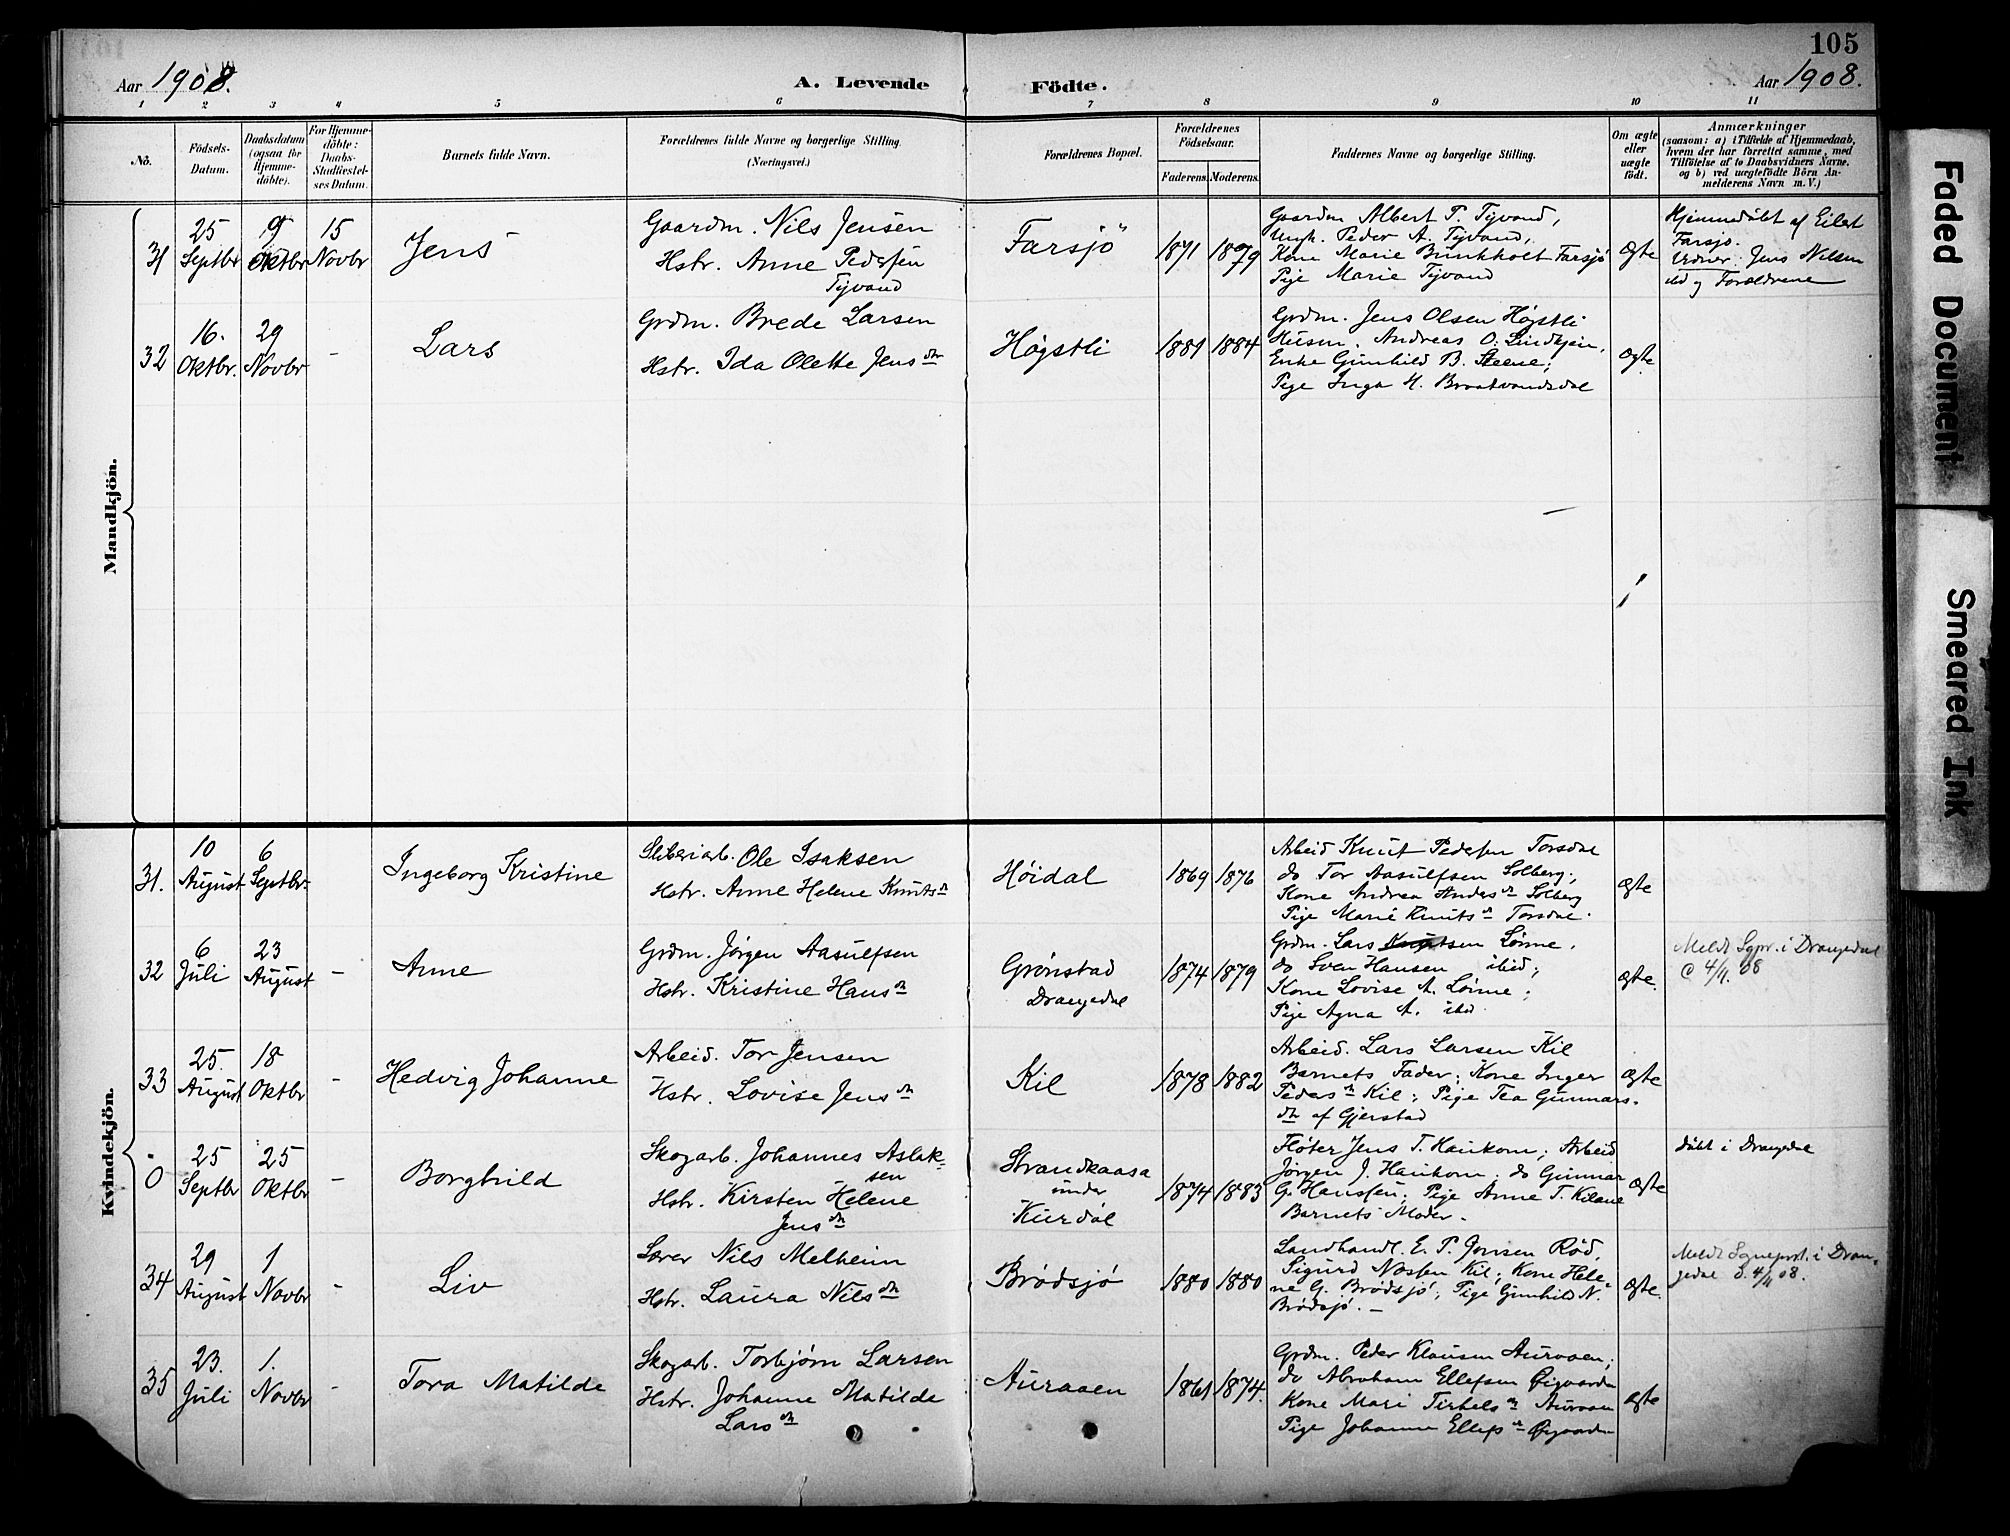 105
Aar 1908.
A. Levende Födte.
Aar 1908.
1 2 3 4 5 6 7 8 9 10 11
No.
Födsels-
Datum.
Daabsdatum
(ogsaa for
Hjemme-
döbte).
For Hjemme-
döbte:
Daabs-
Stadfæstel-
ses Datum.
Barnets fulde Navn.
Forældrenes fulde Navne og borgerlige Stilling.
(Næringsvei.)
Forældrenes Bopæl.
Forældrenes
Födselsaar.
Faderens. Moderens.
Faddernes Navne og borgerlige Stilling.
Om ægte
eller
uægte
födt.
Anmærkninger
(saasom: a) i Tilfælde af Hjemmedaab,
hvem der har forrettet samme, med
Tilföielse af to Daabsvidners Navne,
og b) ved uægtefödte Börn An-
melderens Navn m. V.)
Mandkjön.
31
25
Septbr
9
Oktbr
15
Novbr
Jens
Gaardm. Nils Jensen
Hstr. Anne Pedersen
Tijvand
Farsjö
1871 1879
Gaardm Albert T. Tijvand,
Ungk. Peder A. Tijvand,
Kone Marie Brinkholt Farsjø
Pige Marie Tijvand
Ægte
Hjemmedöbt af Eilert
Farsjø.
Vidner: Jens Nilsen
og Forældrene
32
16.
Oktbr.
29
Novbr
-
Lars
Grdm. Brede Larsen
Hstr. Ida Olette Jensdtr
Høgstli
1881 1884
Grdm. Jens Olsen Høgstli
Husm. Andreas O. Lindkjen,
Enke Gunhild B. Steene;
Pige Inga H. Braatvandsdal
Ægte
Kvindekjön.
31.
10
August
6
Septbr.
Ingeborg Kristine
Sliberiarb. Ole Isaksen
Hstr. Anne Helene Knutsdr
Høidal
1869 1876
Arbeid Knut Pedersen Torsdal
do Tor Aasulfsen Solberg;
Kone Andrea Andersdr Solberg
Pige Marie Knutsdr Torsdal.
Ægte
32
6
Juli
23
August
-
Anne
Grdm. Jörgen Aasulfsen
Hstr. Kristine Hansdr
Grønstad
Drangedal
1874 1879
Grdm. Lars Knutsen Lønne,
do Sven Hansen ibid;
Kone Lovise A. Lønne;
Pige Agna A. ibid.
Ægte.
Meldt Sgpr. i Drangedal
d 4/11. 08
33
25.
August
18
Oktbr
-
Hedvig Johanne
Arbeid. Tor Jensen
Hstr. Lovise Jensdr
Kil
1878 1882
Arbeid. Lars Larsen Kil
Barnets Fader; Kone Inger
Pedersdr Kil; Pige Tea Gunnars-
dtr af Gjerstad
Ægte
0
25
Septbr
25
Oktbr
-
Borghild
Skogarb. Johannes Aslak-
sen
Hstr. Kirsten Helene
Jensdr
Strandkaasa
under
Kurdøl
1874 1883
Fløter Jens T. Haukom; Arbeid
Jørgen J. Haukom; do Gunnar
G. Hanssen; Pige Anne T. Kilane
Barnets Moder.
Ægte
döbt i Drangedal
34
29
August
1
Novbr
-
Liv
Lærer Nils Melheim
Hstr. Laura Nilsdtr
Brødsjø
1880 1880
Landhandl. E. P. Jonsen Rød,
Sigurd Næsten Kil; Kone Hele-
ne G. Brødsjø; Pige Gunhild N.
Brødsjø. -
Ægte.
Meldt Sgneprst. i Dran-
gedal d. 4/11 08.
35
23.
Juli
1.
Novbr
-
Tora Matilde
Skogarb. Torbjørn Larsen
Hstr. Johanne Matilde
Larsdr
Auraaen
1861 1874.
Grdm. Peder Klausen Auraaen;
do Abraham Ellefsen Øigaarden
Kone Mari Tirkelsdr Auraaen
Pige Johanne Ellefsdr Øigaarden
Ægte
Faded Document
Smeared Ink